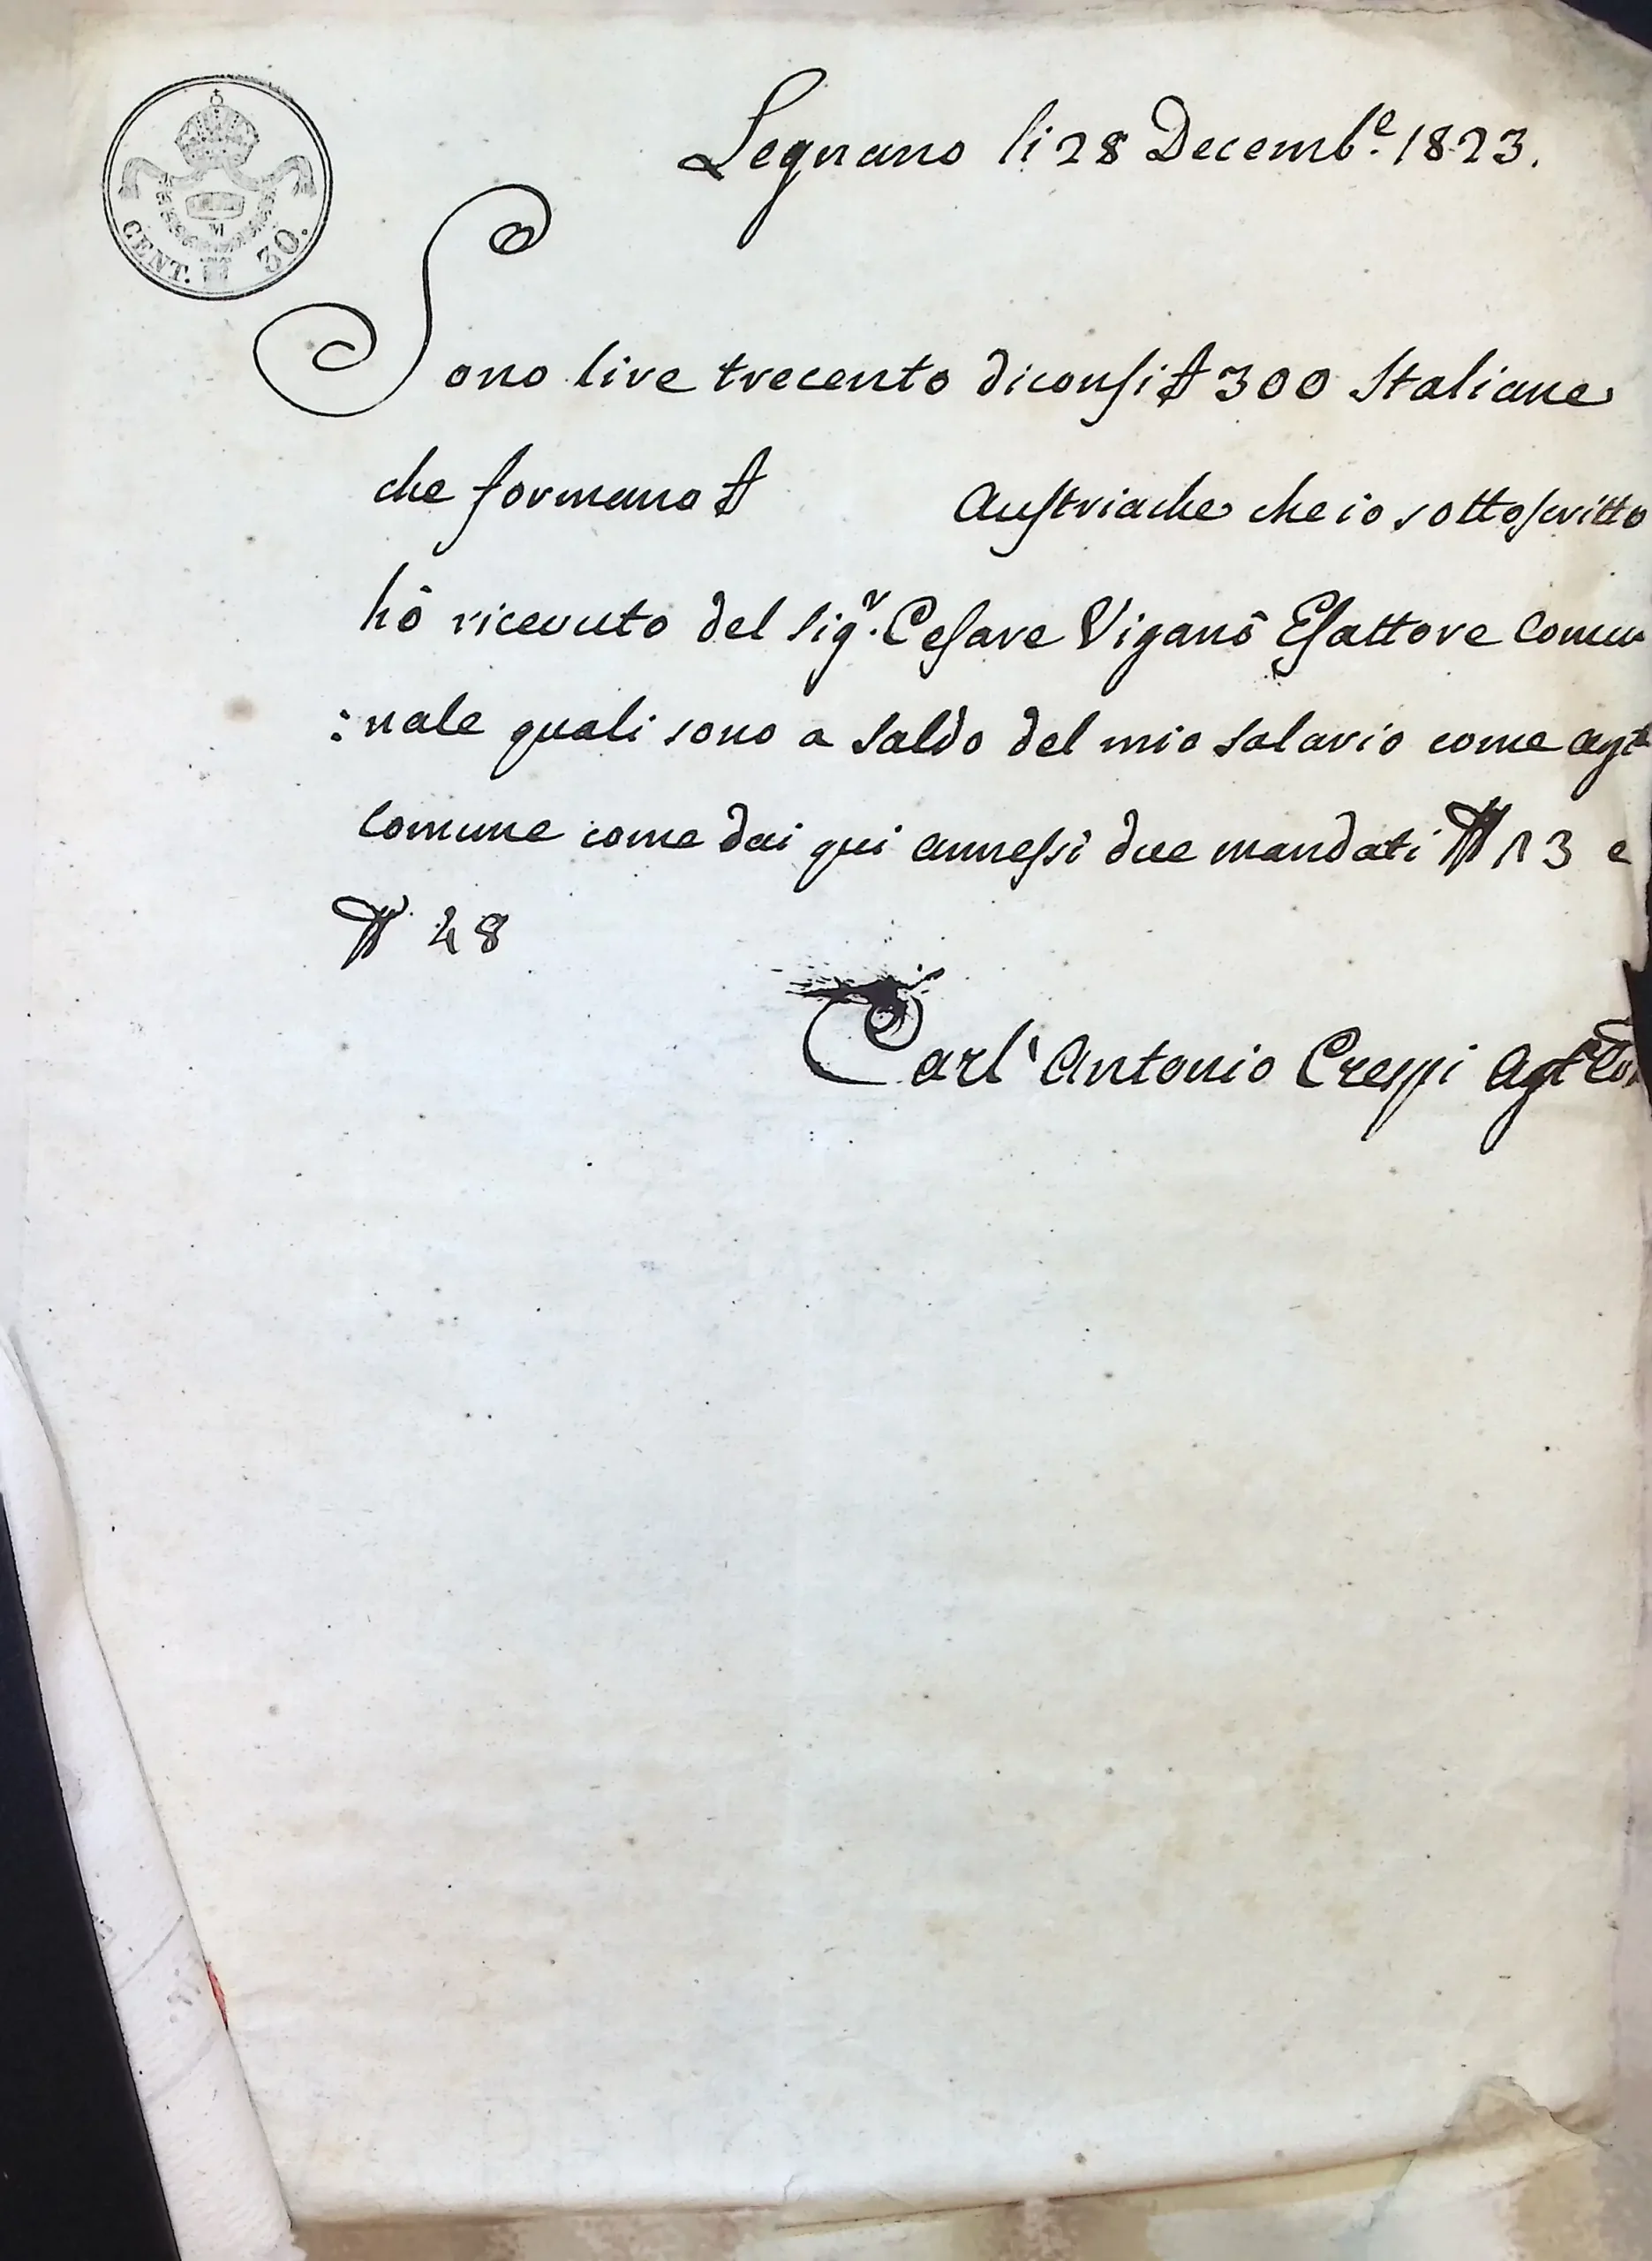 CENT. 30.
M
Legnano li 28 Decemb.e 1823.
Sono lire trecento diconsi £ 300 Italiane
che formano £ Austriache che io sottoscritto
hò ricevuto del Sig.r Cesare Viganò Esattore Comu
:nale quali sono a saldo del mio salario come agte
Comune come dai qui annessi due mandati N 13 e
N 48
Carl' Antonio Crespi Agte